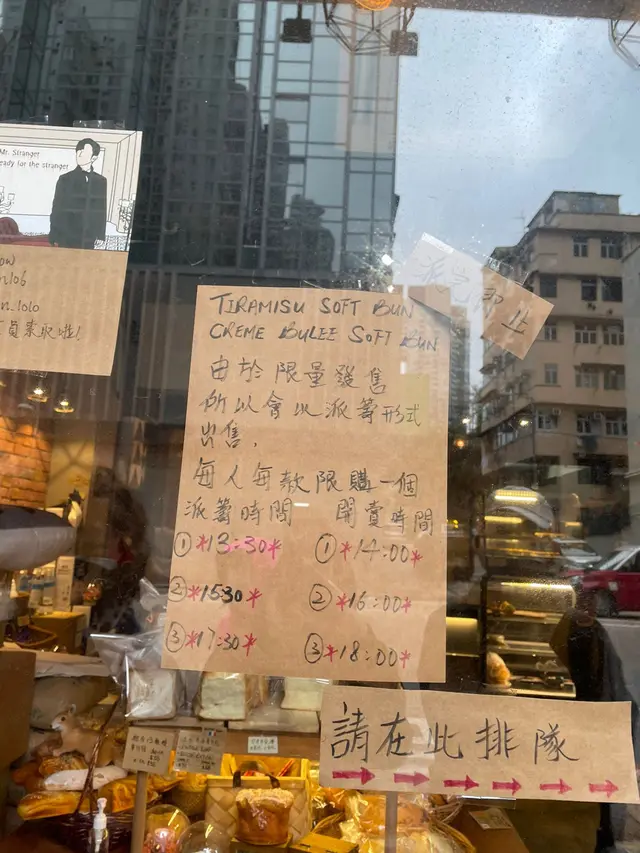 Mr. Stranger
eady for the stranger
TIRAMISU SOFT BUN
CREME BULEE SOFT BUN
由於限量發售
所以會以派籌形式
出售，
每人每款限購一個
派籌時間 開賣時間
① *13:30* ① *14:00*
② *1530* ② *16:00*
③ *17:30* ③ *18:00*
請在此排隊